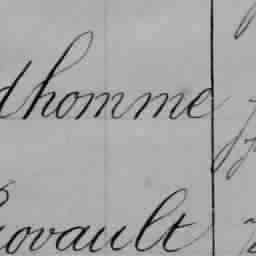 dhomme
ovault